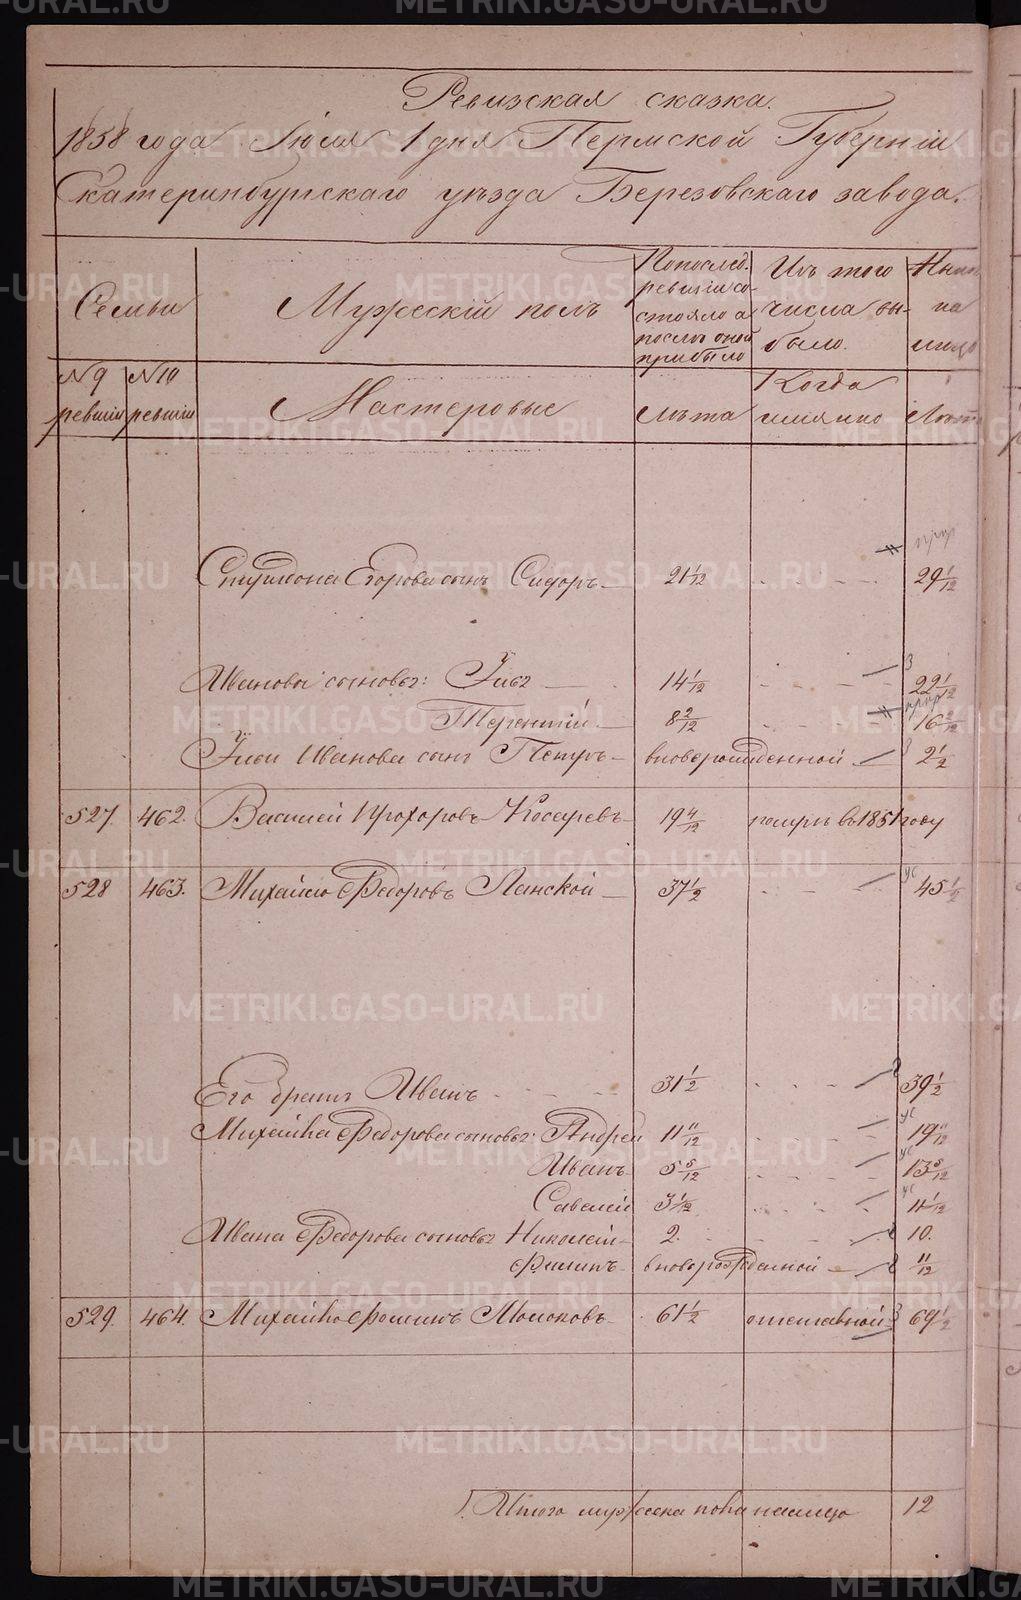 Ревизская сказка.
1858 года Июля 1 дня Пермской Губернии
Екатеринбургскаго уѣзда Березовскаго завода.
Семьи
Мужескій полъ
Попослѣд. ревизіи со- стояло а послѣ оной прибыло
Изъ того числа вы- было.
Нынѣ на лицо
№ 9 ревизіи
№ 10 ревизіи
Мастеровые
лѣта
Когда имянно
Лѣта
Спиридона Егорова сынъ Сидоръ 21 1/12 29 1/12
Ивановы сыновья: 14 1/12 22 1/12
Терентій 8 2/12 16 2/12
Иванова сынъ Петръ вновьрожденной 2 1/2
527. 462. Василей Прохоровъ Косаревъ 19 4/12 помръ въ 1851 году
528 463. Михайло Федоровъ Ланской 37 1/2 45 1/2
Его братъ Иванъ 31 1/2 39 1/2
Михайла Федорова сыновья: Андрей 11 11/12 19 11/12
Иванъ 5 5/12 13 5/12
Савелій 3 1/12 11 1/12
Ивана Федорова сыновья Николай 2. 10.
Филипъ вновьрожденной 11/12
529. 464. Михайло Фоминъ Молоковъ 61 1/2 отставной 69 1/2
Итого мужеска пола налицо 12
METRIKI.GASO-URAL.RU